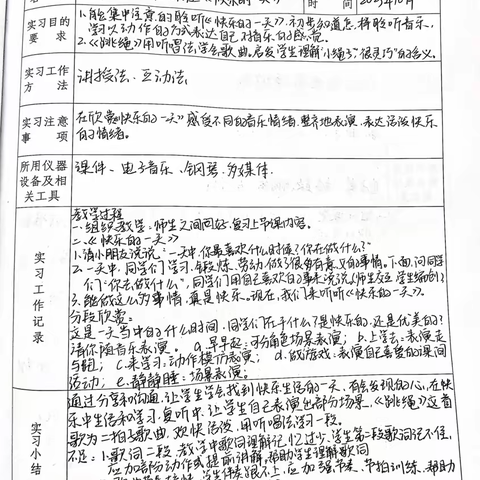 时 间
实习目的
要 求
1.能集中注意的聆听《快乐的一天》,初步知道怎样聆听音乐,
学习以动作的方式表达自己对音乐的感觉。
2.《跳绳》用听唱法学会歌曲。启发学生理解“小绳子”“很灵巧”的含义。
实习工作
方 法
讲授法、互动法
实习注意
事 项
在欣赏《快乐的一天》感受不同的音乐情绪,整齐地表演、表达活泼快乐
的情绪。
所用仪器
设备及相
关工具
课件、电子音乐、钢琴、多媒体.
实习工作记录
教学过程
一、组织教学:师生之间问好,复习上节课内容。
二、《快乐的一天》
1、请小朋友说说,“一天中,你最喜欢什么时候?你在做什么?”
2、一天中,同学们学习、锻炼、劳动,做了很多有意义的事情。下面,问同学
们“你去做什么”,同学们用自己喜欢的
3、能做这么多事情,真是快乐。现在,我们来听听《快乐的一天》。
分段欣赏:
这是一天当中的什么时间,同学们在干什么?是快乐的,还是优美的?
请你随音乐表演。a.早早起:可分角色场景表演;b.上学去:表演走
与跑;c.来学习:动作模仿表演;d.做游戏:表演自己喜爱的课间
活动;e.静静睡:场景表演。
实习小结
通过分享和沟通,让学生学会找到快乐生活的一天,有善于发现的心,在快
乐中生活和学习,复听中,让学生自己表演出部分场景。《跳绳》这首
歌为二拍子歌曲,欢快活泼,用听唱法学习一段。
不足:1.歌词二段,教学中歌词理解记忆过少,学生第二段歌词记不住,
应加部分动作或提前讲解,帮助学生理解歌词
应加强节奏、节拍训练,帮助